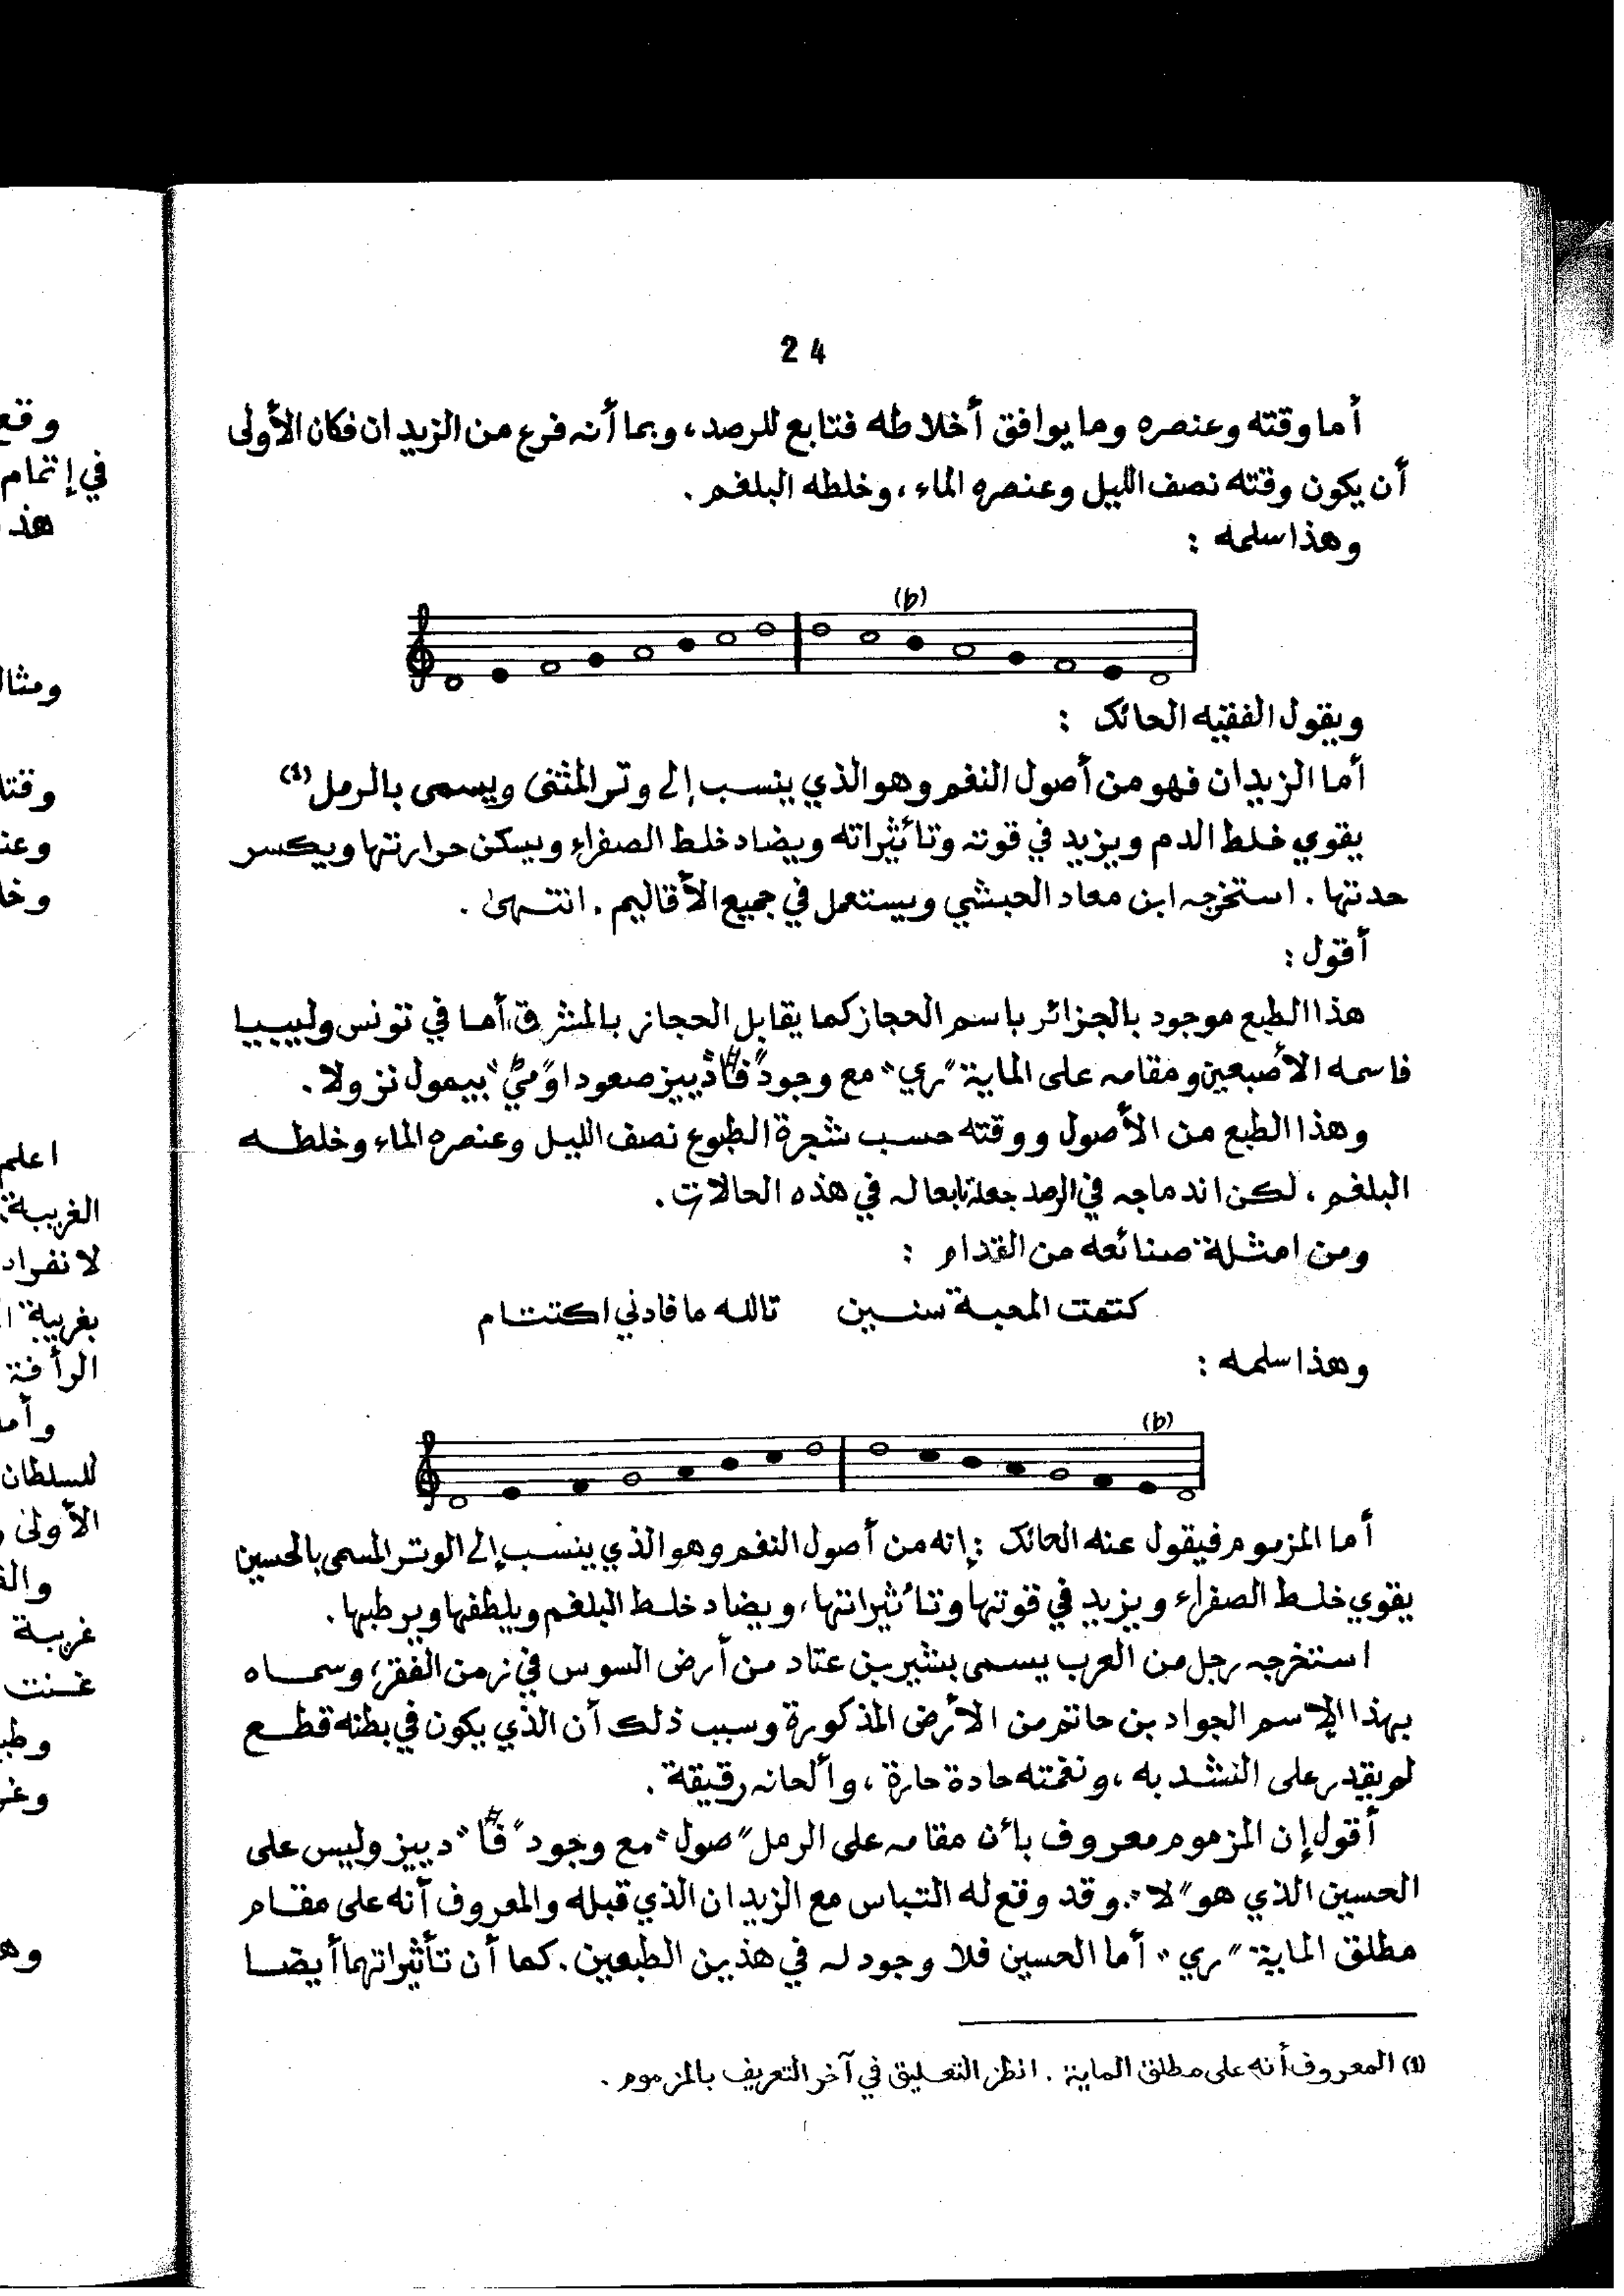 24
أما وقته وعنصره وما يوافق أخلاطه فتابع للرصد، وبما أنه فرع من الزيدان فكان الأولى
أن يكون وقته نصف الليل وعنصره الماء، وخلطه البلغم.
وهذا سلمه :
(b)
ويقول الفقيه الحائك :
أما الزيدان فهو من أصول النغم وهو الذي ينسب إلى وتر المثنى ويسمى بالرمل (1)
يقوي خلط الدم ويزيد في قوته وتأثيراته ويضاد خلط الصفراء ويسكن حرارتها ويكسر
حدتها . استخرجه ابن معاد الحبشي ويستعمل في جميع الأقاليم . انتهى .
أقول :
هذا الطبع موجود بالجزائر باسم الحجاز كما يقابل الحجاز بالمشرق، أما في تونس وليبيا
فاسمه الأصبعين ومقامه على الماية "ري" مع وجود "فا" ذييز صعودا و"مي" بيمول نزولا .
وهذا الطبع من الأصول ووقته حسب شجرة الطبوع نصف الليل وعنصره الماء وخلطه
البلغم ، لكن اندماجه في الرصد جعله تابعا له في هذه الحالات .
ومن امثلة صنائعه من القدام :
كتمت المحبة سنين تالله ما فادني اكتتام
وهذا سلمه :
(b)
أما المزموم فيقول عنه الحائك : إنه من أصول النغم وهو الذي ينسب إلى الوتر المسمى بالحسين
يقوي خلط الصفراء ويزيد في قوتها وتأثيراتها، ويضاد خلط البلغم ويلطفها ويرطبها .
استخرجه رجل من العرب يسمى بشير بن عتاد من أرض السوس في زمن الفقر، وسماه
بهذا الإسم الجواد بن حاتم من الأرض المذكورة وسبب ذلك أن الذي يكون في بطنه قطع
لم يقدر على النشد به ، ونغمته حادة حارة ، وألحانه رقيقة .
أقول إن المزموم معروف بأن مقامه على الرمل "صول" مع وجود "فا" دييز وليس على
الحسين الذي هو "لا". وقد وقع له التباس مع الزيدان الذي قبله والمعروف أنه على مقام
مطلق الماية "ري" أما الحسين فلا وجود له في هذين الطبعين . كما أن تأثيراتهما أيضا
(1) المعروف أنه على مطلق الماية . انظر التعليق في آخر التعريف بالمزموم .
وقع
في إتمام
ومثا
وقتا
وعن
وخا
اعلم
الغريبة
لانفراد
بغريبة
الرأفة
وأم
للسلطان
الأولى
غريبة
غنت
وطب
وغر